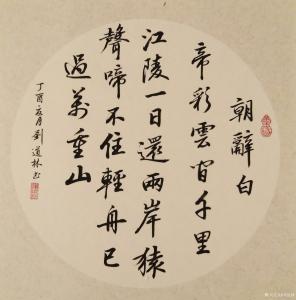 朝辭白
帝彩雲間千里
江陵一日還兩岸猿
聲啼不住輕舟已
過萬重山
丁酉夏月劉道林书